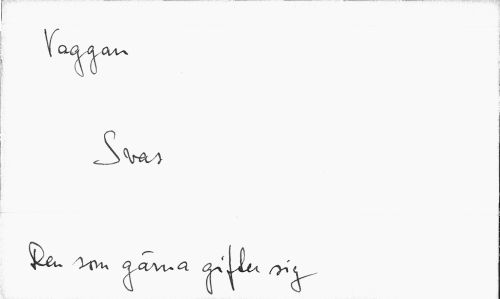 Vaggan
Svas
Den som gärna gifter sig